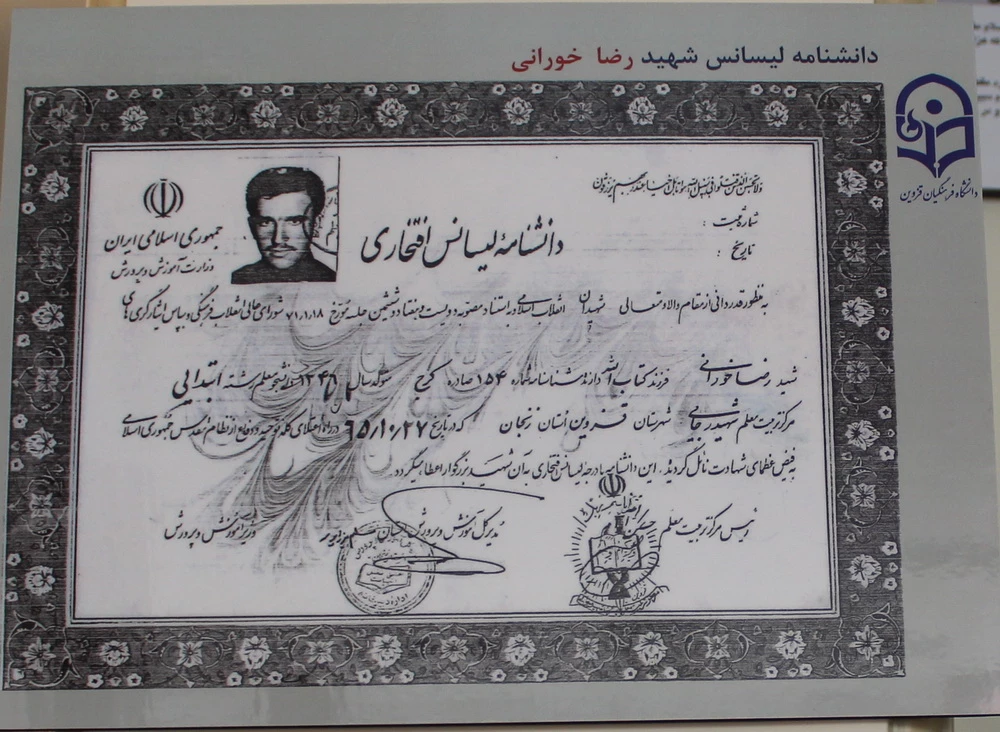 دانشنامه لیسانس شهید رضا خورانی
دانشگاه فرهنگیان قزوین
شماره ثبت :
تاریخ :
جمهوری اسلامی ایران
وزارت آموزش و پرورش
دانشنامهٔ لیسانس افتخاری
به منظور قدردانی از مقام والا و متعالی شهیدان انقلاب اسلامی و به استناد مصوبه دویست و هفتاد و ششمین جلسه مورخ ۷۱,۱,۱۸ شورای عالی انقلاب فرهنگی و بپاس ایثارگری های
شهید رضا خورانی فرزند کتاب الله دارنده شناسنامه شماره ۱۵۴ صادره کرج متولد سال ۱۳۴۵ دانشجو معلم رشته ابتدایی
مرکز تربیت معلم شهید رجایی شهرستان قزوین استان زنجان که در تاریخ ۶۵/۱۰/۲۷ در راه اعتلای کلمه توحید و دفاع از نظام مقدس جمهوری اسلامی
به فیض عظمای شهادت نائل گردید. این دانشنامه با درجه لیسانس افتخاری به آن شهید بزرگوار اعطا میگردد.
رئیس مرکز تربیت معلم
مدیرکل آموزش و پرورش استان
وزیر آموزش و پرورش